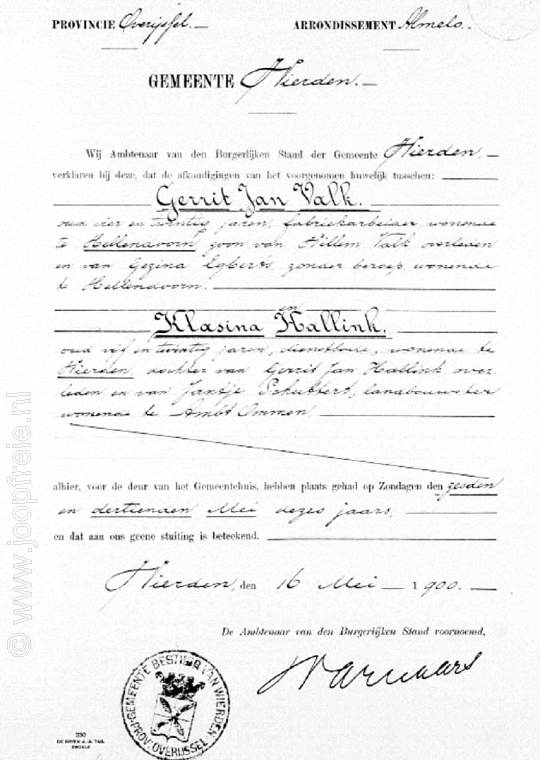 PROVINCIE Overijssel. ARRONDISSEMENT Almelo.
GEMEENTE Wierden.
Wij Ambtenaar van den Burgerlijken Stand der Gemeente Wierden,
verklaren bij deze, dat de afkondigingen van het voorgenomen huwelijk tusschen:
Gerrit Jan Valk.
oud vier en twintig jaren, fabriekarbeider wonende
te Hellendoorn, zoon van Willem Valk overleden
en van Gezina Egberts, zonder beroep, wonende
te Hellendoorn.
en
Klasina Hallink,
oud vijf en twintig jaren, dienstbode, wonende te
Wierden, dochter van Gerrit Jan Hallink over-
leden en van Jantje Schubbert, landbouwster
wonende te Ambt Ommen,
alhier, voor de deur van het Gemeentehuis, hebben plaats gehad op Zondagen den zesden
en dertienden Mei dezes jaars,
en dat aan ons geene stuiting is beteekend.
Wierden, den 16 Mei 1900.
De Ambtenaar van den Burgerlijken Stand voornoemd,
GEMEENTE BESTUUR VAN WIERDEN
PROV. OVERIJSSEL
© www.joopfreie.nl